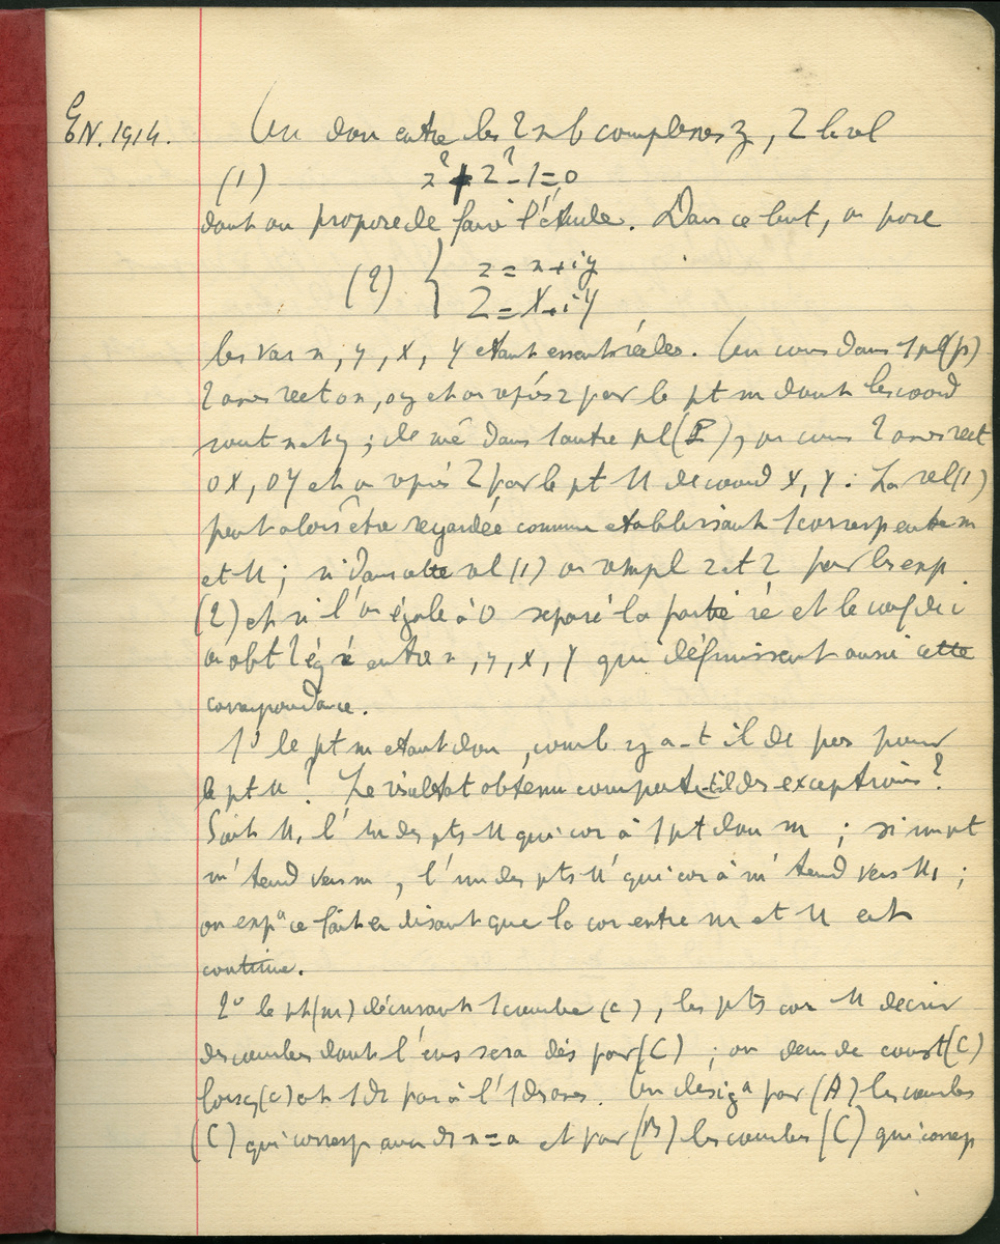 EN. 1914.
On don entre les 2 nb complexes z, Z la rel
(1) z² + Z² - 1 = 0
dont on propose de faire l'étude. Dans ce but, on pose
(2) { z = x + iy
Z = X + iY
les var x, y, X, Y étant essent réelles. On cons dans 1 pl (p)
2 axes rect ox, oy et on représ z par le pt m dont les coord
sont x et y ; de mê dans 1 autre pl (P), on cons 2 axes rect
OX, OY et on représ Z par le pt M de coord X, Y. La rel (1)
peut alors être regardée comme établissant 1 corresp entre m
et M ; si dans cette rel (1) on rempl z et Z par les exp
(2) et si l'on égale à 0 séparé la partie ré et le coef de i
on obt 2 ég ré entre x, y, X, Y qui définissent aussi cette
correspondance.
1° le pt m étant don, comb y a-t-il de pos pour
le pt M ? Le résultat obtenu comporte-t-il des exceptions ?
Soit M₁ l'un des pts M qui cor à 1 pt don m ; si un pt
m' tend vers m, l'un des pts M' qui cor à m' tend vers M₁ ;
on expª ce fait en disant que la cor entre m et M est
continue.
2° le pt (m) décrivant 1 courbe (c), les pts cor M décriv
des courbes dont l'ens sera dés par (C) ; on demde const (C)
lorsq (c) est 1 dr par à l'1 des axes. On désigª par (A) les courbes
(C) qui corresp aux dr x = a et par (B) les courbes (C) qui corresp